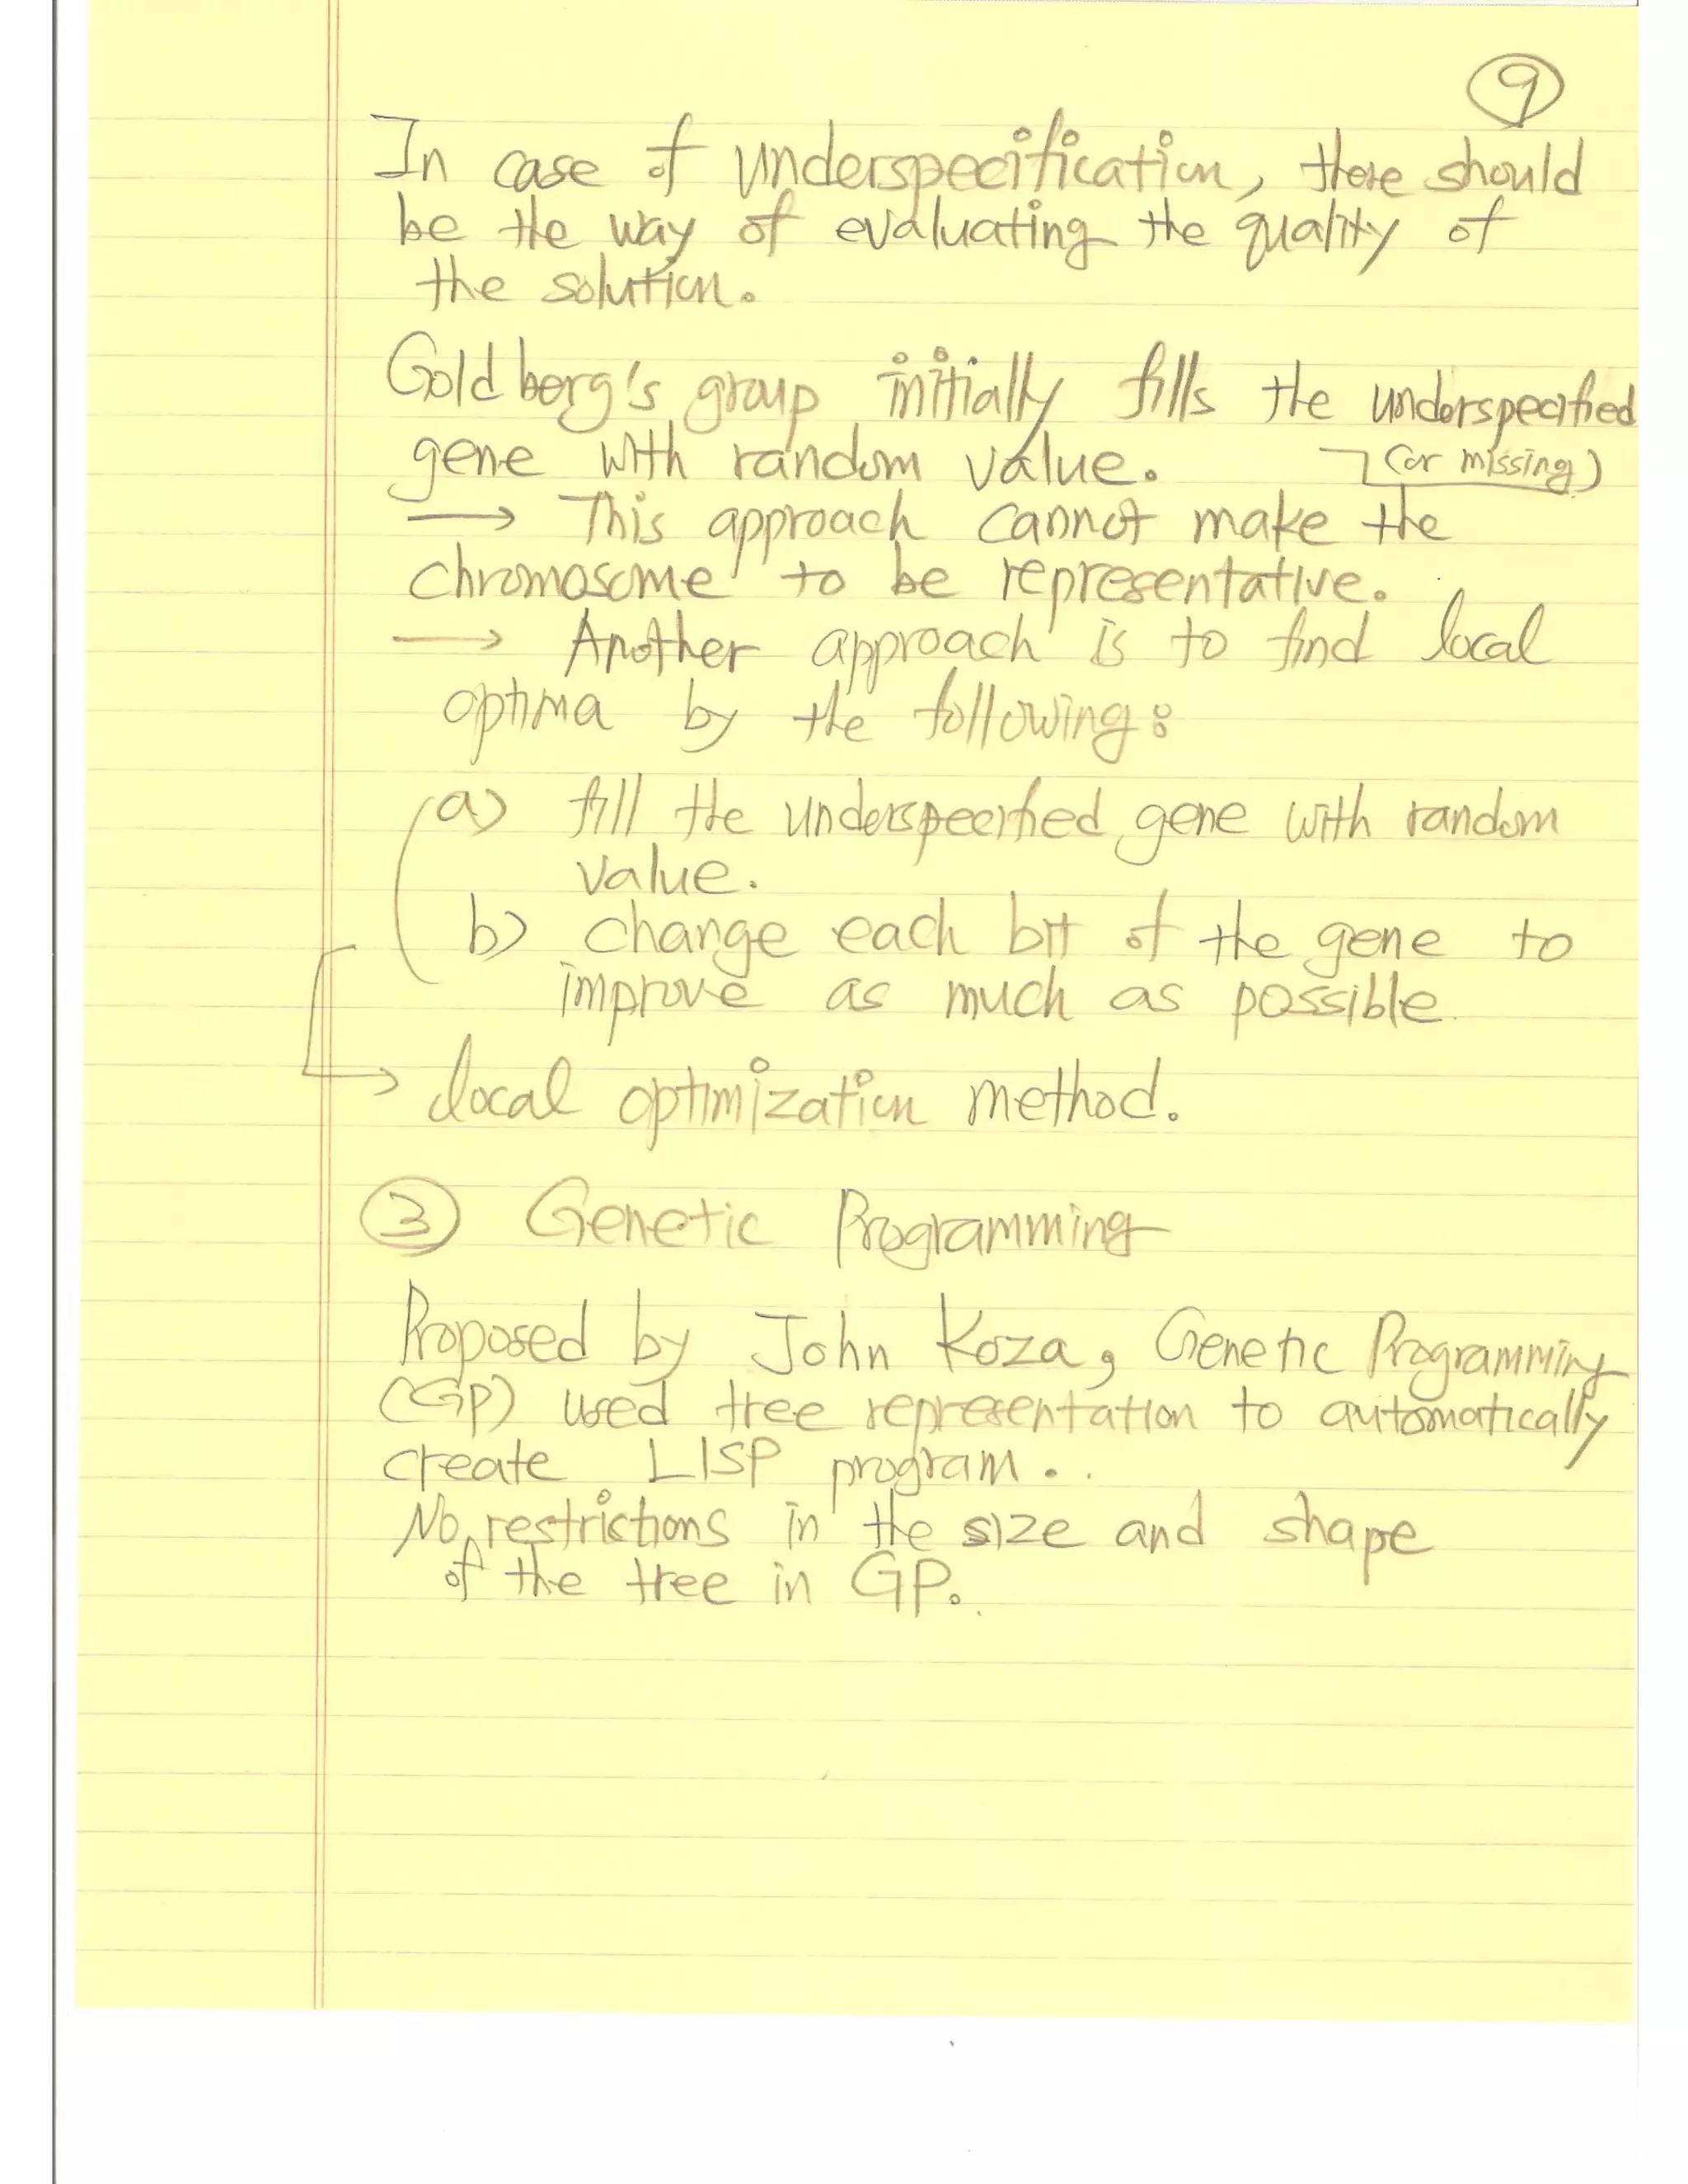 9
In case of underspecification, there should
be the way of evaluating the quality of
the solution.
Goldberg's group initially fills the underspecified
gene with random value. (or missing)
→ This approach cannot make the
chromosome to be representative.
→ Another approach is to find local
optima by the following:
a) fill the underspecified gene with random
value.
b) change each bit of the gene to
improve as much as possible.
→ local optimization method.
③ Genetic Programming
Proposed by John Koza, Genetic Programming
(GP) used tree representation to automatically
create LISP program.
No restrictions in the size and shape
of the tree in GP.